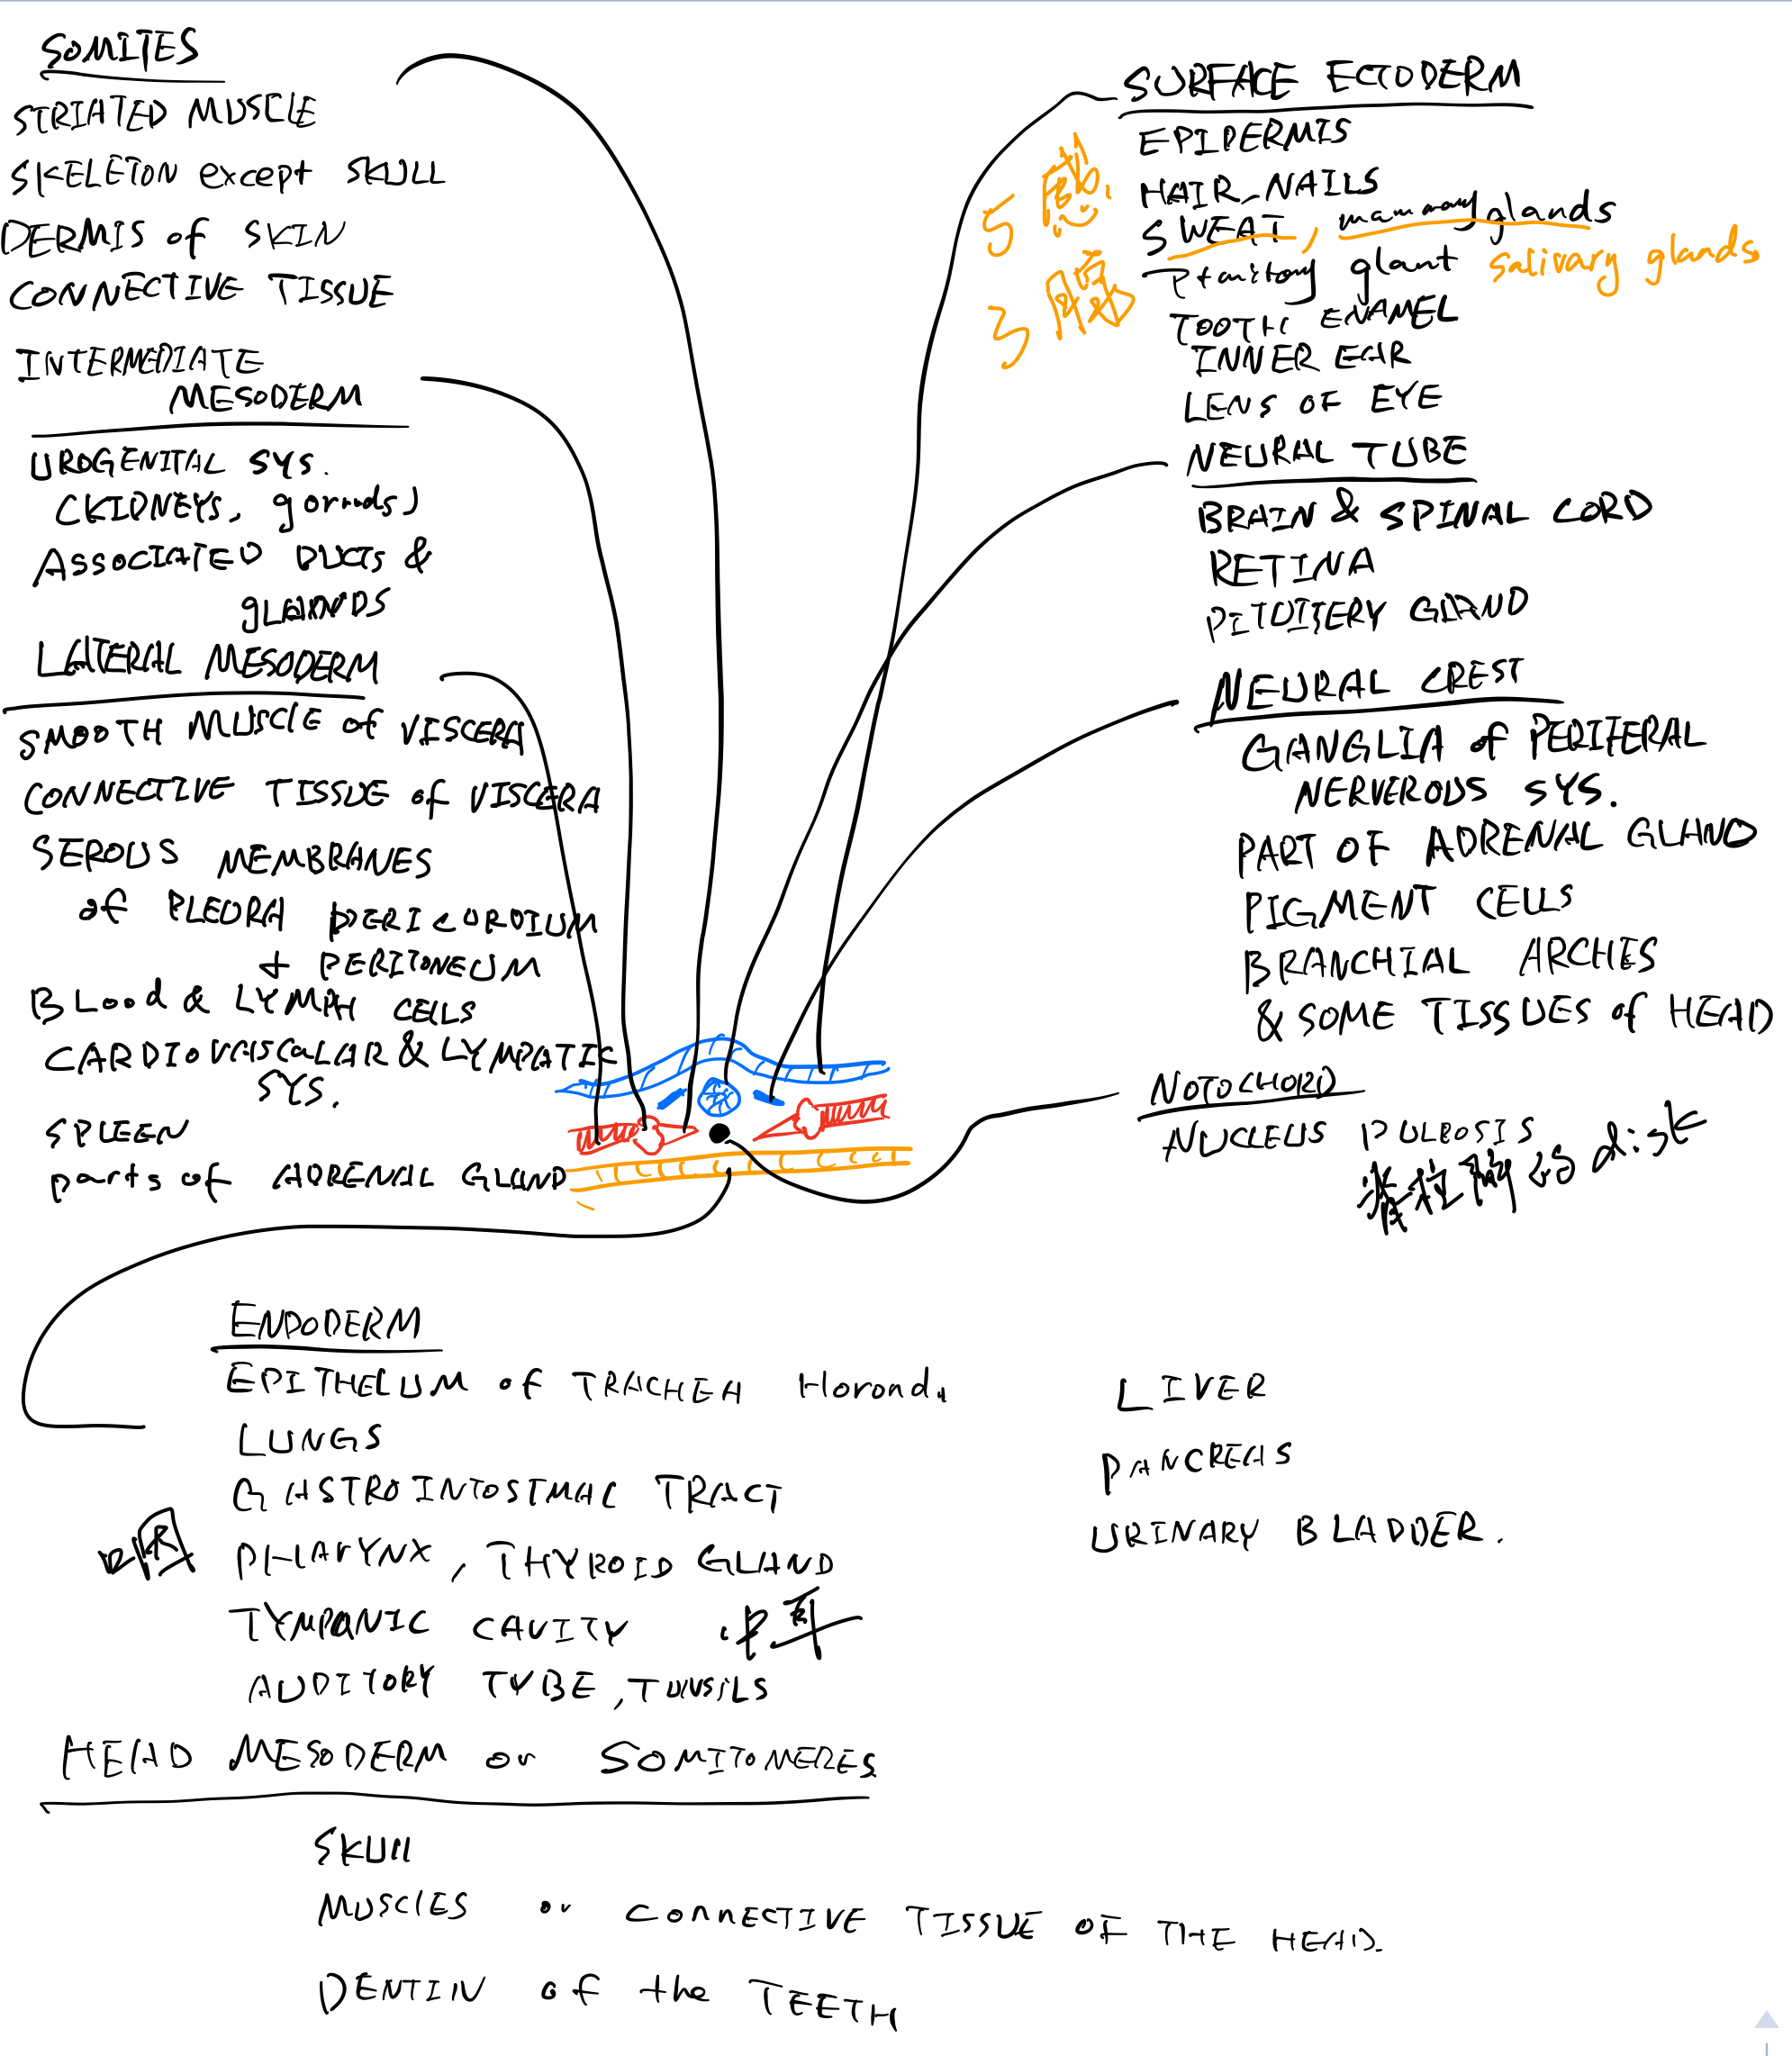 SOMITES
STRIATED MUSCLE
SKELETON except SKULL
DERMIS of SKIN
CONNECTIVE TISSUE
INTERMEDIATE
MESODERM
UROGENITAL SYS.
(KIDNEYS, gornads)
ASSOCIATED DUCTS &
gLANDS
LATERAL MESODERM
SMOOTH MUSCLE of VISCERA
CONNECTIVE TISSUE of VISCERA
SEROUS MEMBRANES
of PLEURA PERICORDIUM
+ PERITONEUM
BLood & LYMPH CELLS
CARDIOVASCULAR & LYMPATIC
SYS.
SPLEEN
parts of ADRENAL GLAND
SURFACE ECTODERM
EPIDERMIS
HAIR, NAILS
SWEAT, mammary glands
glant salivary glands
TOOTH ENAMEL
INNER EAR
LENS OF EYE
5感.
3膜
NEURAL TUBE
BRAIN & SPINAL CORD
RETINA
PITUITERY GLAND
NEURAL CREST
GANGLIA of PERIFERAL
NERVEROUS SYS.
PART OF ADRENAL GLAND
PIGMENT CELLS
BRANCHIAL ARCHES
& SOME TISSUES of HEAD
NOTOCHORD
NUCLEUS PULPOSIS
脊柱 的 disk
ENDODERM
EPITHELUM of TRACHEA
LUNGS
GASTROINTOSTINAL TRACT
咽 PHARYNX, THYROID GLAND
TYMPANIC CAVITY 中耳
AUDITORY TUBE, TONSILS
LIVER
PANCREAS
URINARY BLADDER.
HEAD MESODERM or SOMITOMERES
SKULL
MUSCLES or CONNECTIVE TISSUE OF THE HEAD.
DENTIN of the TEETH